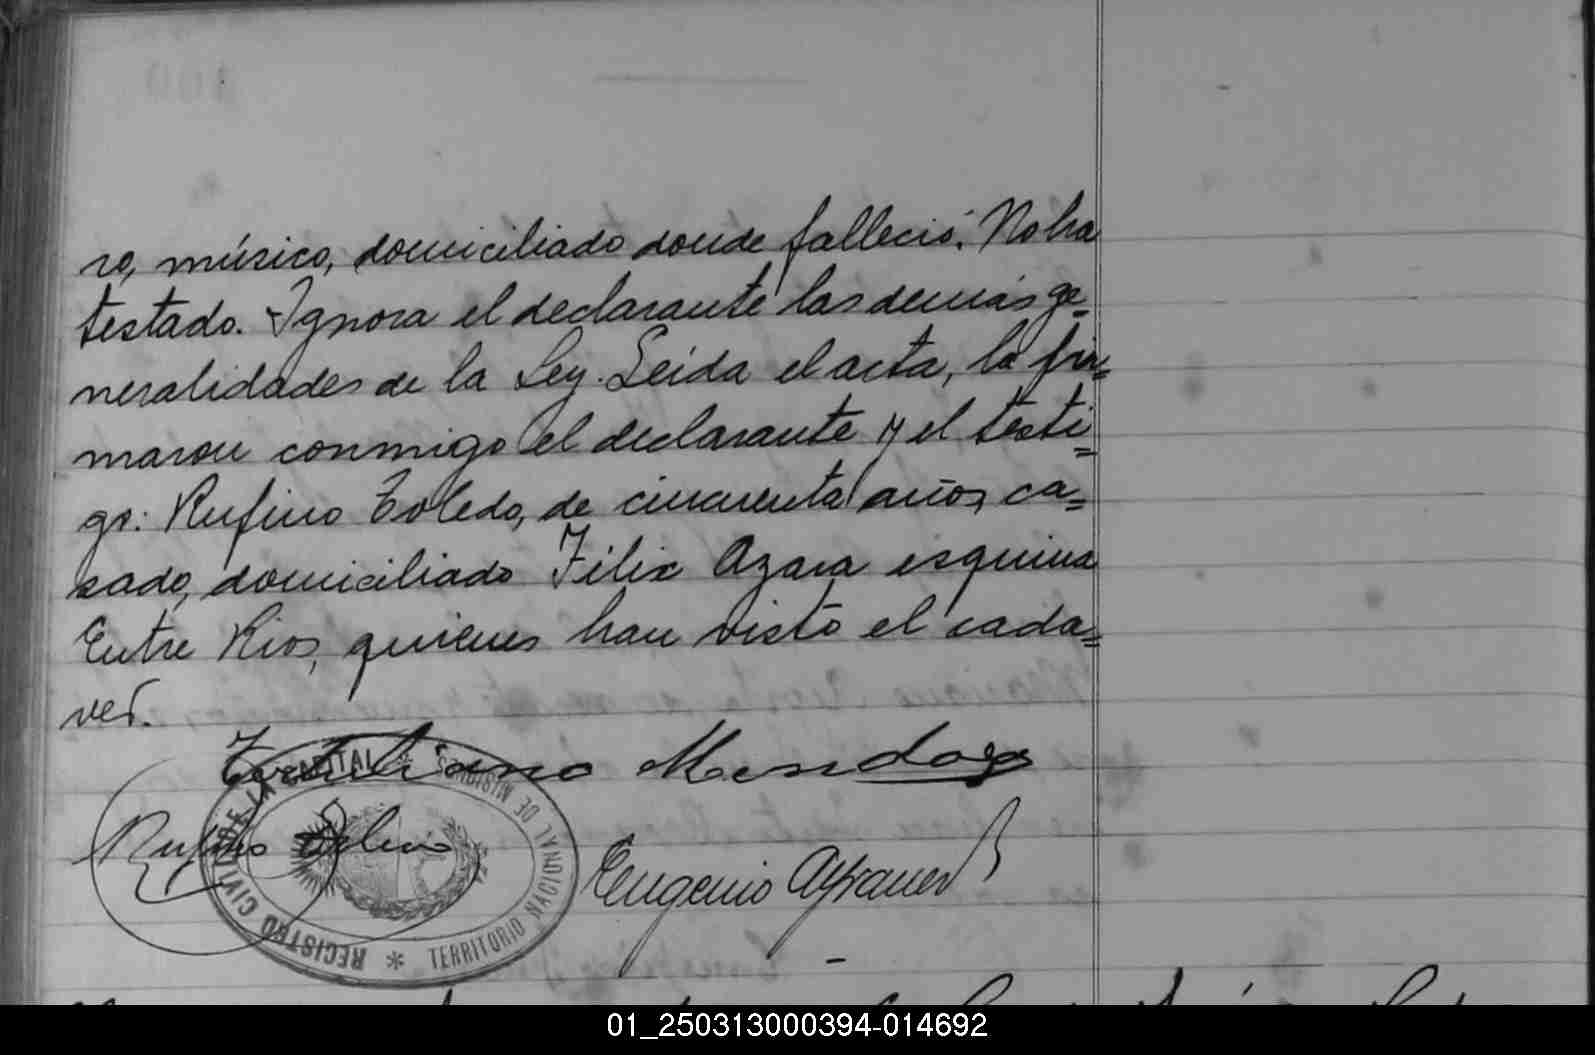 ro, músico, domiciliado donde falleció. No ha
testado. Ignora el declarante las demás ge=
neralidades de la Ley. Leída el acta, la fir=
maron conmigo el declarante y el testi=
go: Rufino Toledo, de cincuenta años, ca=
sado, domiciliado Félix Azara esquina
Entre Rios, quienes han visto el cada=
ver.
Tertuliano Mendoza
Rufino Toledo
Eugenio
REGISTRO CIVIL DE LA CAPITAL * TERRITORIO NACIONAL DE MISIONES *
01_250313000394-014692